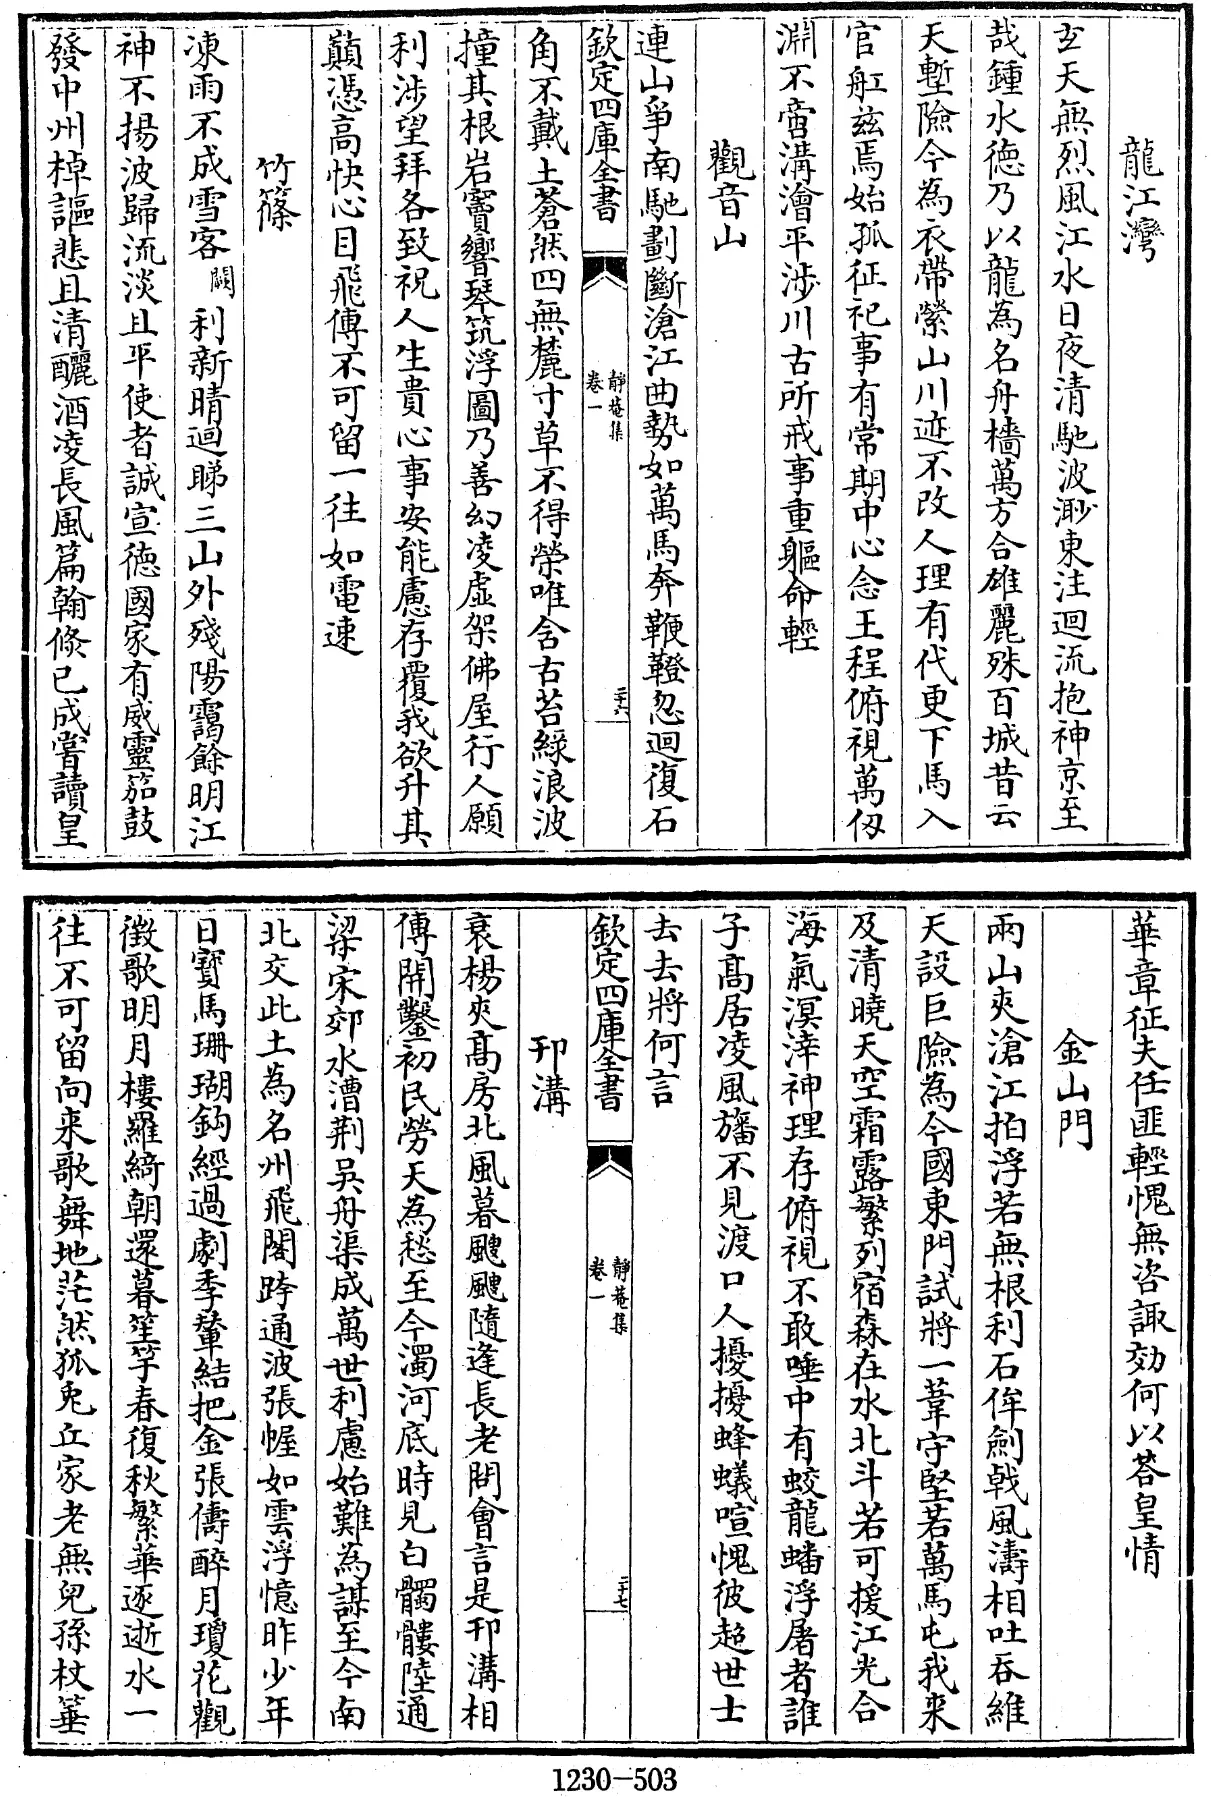 龍江灣
玄天無烈風江水日夜清馳波渺東注迴流抱神京至
哉鍾水德乃以龍為名舟檣萬方合雄麗殊百城昔云
天塹險今為衣帶縈山川迹不改人理有代更下馬入
官舡兹焉始孤征祀事有常期中心念王程俯視萬仭
淵不啻溝澮平渉川古所戒事重軀命輕
觀音山
連山爭南馳劃斷滄江曲勢如萬馬奔鞭鞳忽迴復石
欽定四庫全書
靜菴集
卷一
二十六
角不戴土蒼然四無麓寸草不得榮唯含古苔緑浪波
撞其根岩竇響琴筑浮圖乃善幻凌虛架佛屋行人願
利渉望拜各致祝人生貴心事安能慮存覆我欲升其
巔憑高快心目飛傳不可留一往如電速
竹篠
凍雨不成雪客闕利新晴迴睇三山外殘陽靄餘明江
神不揚波歸流淡且平使者誠宣德國家有威靈笳鼓
發中州棹謳悲且清釃酒凌長風篇翰倐已成嘗讀皇
華章征夫任匪輕愧無咨諏効何以荅皇情
金山門
兩山夾滄江拍浮若無根利石侔劍戟風濤相吐吞維
天設巨險為今國東門試將一葦守堅若萬馬屯我来
及清曉天空霜露繁列宿森在水北斗若可援江光合
海氣溟涬神理存俯視不敢唾中有蛟龍蟠浮屠者誰
子髙居凌風旛不見渡口人擾擾蜂蟻喧愧彼超世士
去去將何言
欽定四庫全書
靜菴集
卷一
二十七
邗溝
衰楊夾髙房北風暮颼颼隨逢長老問會言是邗溝相
傳開鑿初民勞天為愁至今濁河底時見白髑髏陸通
梁宋郊水漕荆吳舟渠成萬世利慮始難為謀至今南
北交此土為名州飛閣跨通波張幄如雲浮憶昨少年
日寶馬珊瑚鈎經過劇季輦結把金張儔醉月瓊花觀
徴歌明月樓羅綺朝還暮笙竽春復秋繁華逐逝水一
往不可留向来歌舞地茫然狐兎丘家老無兒孫杖箠
1230-503